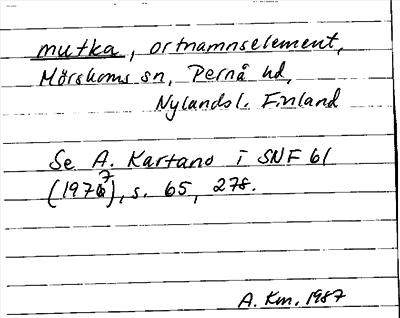 mutka, ortnamnselement,
Mörskoms sn, Pernå hd,
Nylands l. Finland
Se A. Kartano i SNF 61
(1977), s. 65, 278.
A. Km. 1987